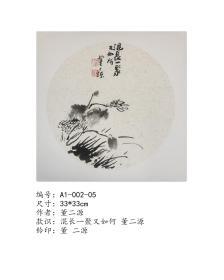 混长一聚
又如何
董二源
编号：A1-002-05
尺寸：33*33cm
作者：董二源
款识：混长一聚又如何 董二源
钤印：董 二源